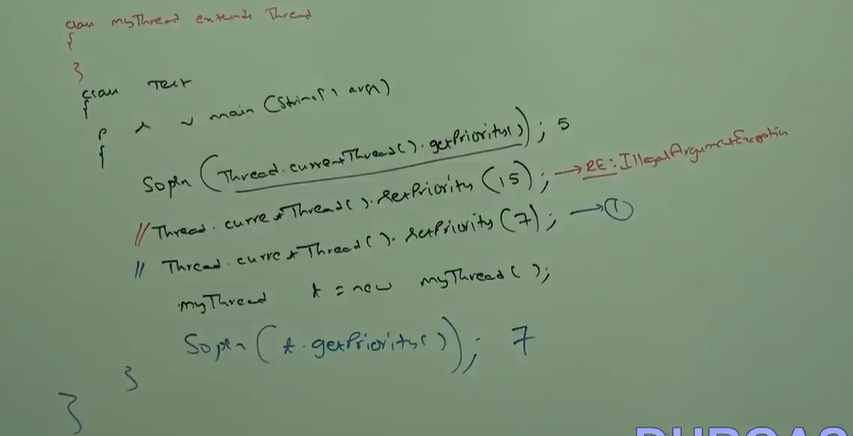 class myThread extends Thread
{
}
class Test
{
p s v main (String[] args)
{
Sopln (Thread.currentThread().getPriority()); 5
// Thread.currentThread().setPriority(15); → RE: IllegalArgumentException
// Thread.currentThread().setPriority(7); → ①
myThread t = new myThread();
Sopln(t.getPriority()); 7
}
}